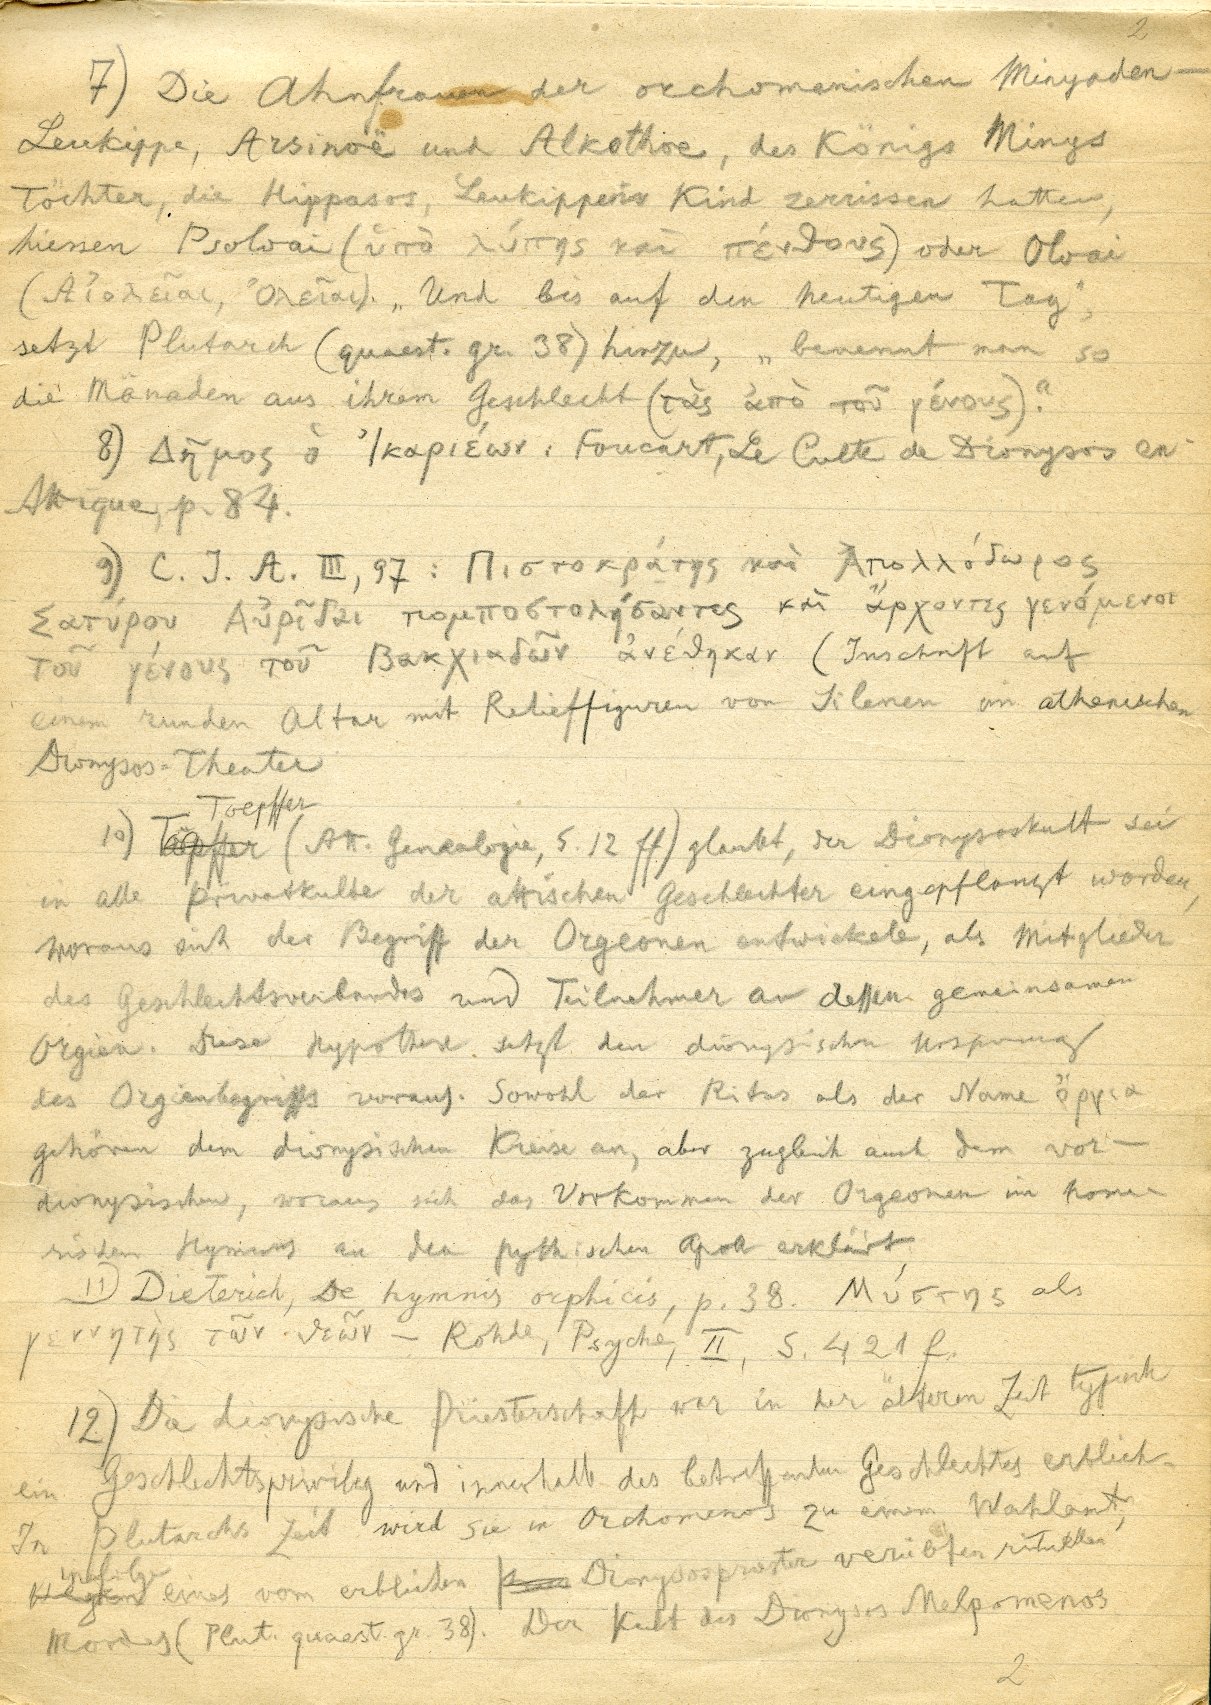 2
7) Die Ahnfrauen der orchomenischen Minyaden —
Leukippe, Arsinoë und Alkathoe, des Königs Minys
Töchter, die Hippasos, Leukippens Kind zerrissen hatten,
hiessen Psoloai (ὑπὸ λύπης καὶ πένθους) oder Oloai
(Αἰολεῖαι, Ὀλεῖαι). „Und bis auf den heutigen Tag",
setzt Plutarch (quaest. gr. 38) hinzu, „benennt man so
die Mänaden aus ihrem Geschlecht (τὰς ἀπὸ τοῦ γένους)."
8) Δῆμος ὁ Ἰκαριέων: Foucart, Le Culte de Dionysos en
Attique, p. 84.
9) C. I. A. III, 97: Πιστοκράτης καὶ Ἀπολλόδωρος
Σατύρου Αὐρῖδαι πομποστολήσαντες καὶ ἄρχοντες γενόμενοι
τοῦ γένους τοῦ Βακχιαδῶν ἀνέθηκαν (Inschrift auf
einem runden Altar mit Relieffiguren von Silenen im athenischen
Dionysos-Theater
Toepffer
10) Töpffer (Att. Genealogie, S. 12 ff) glaubt, der Dionysoskult sei
in alle Privatkulte der attischen Geschlechter eingepflanzt worden,
woraus sich der Begriff der Orgeonen entwickele, als Mitglieder
des Geschlechtsverbandes und Teilnehmer an dessen gemeinsamen
Orgien. Diese Hypothese setzt den dionysischen Ursprung
des Orgienbegriffs voraus. Sowohl der Ritus als der Name ὄργια
gehören dem dionysischen Kreise an, aber zugleich auch dem vor-
dionysischen, woraus sich das Vorkommen der Orgeonen im home-
rischen Hymnus an den pythischen Apoll erklärt.
11) Dieterich, De hymnis orphicis, p. 38. Μύστης als
γεννητὴς τῶν θεῶν — Rohde, Psyche, II, S. 421 f.
12) Die dionysische Priesterschaft war in der älteren Zeit typisch
ein Geschlechtsprivileg und innerhalb des betreffenden Geschlechtes erblich.
In Plutarchs Zeit wird sie in Orchomenos zu einem Wahlamt,
infolge
eines vom erblichen Dionysospriester verübten rituellen
Mordes (Plut. quaest. gr. 38). Der Kult des Dionysos Melpomenos
2